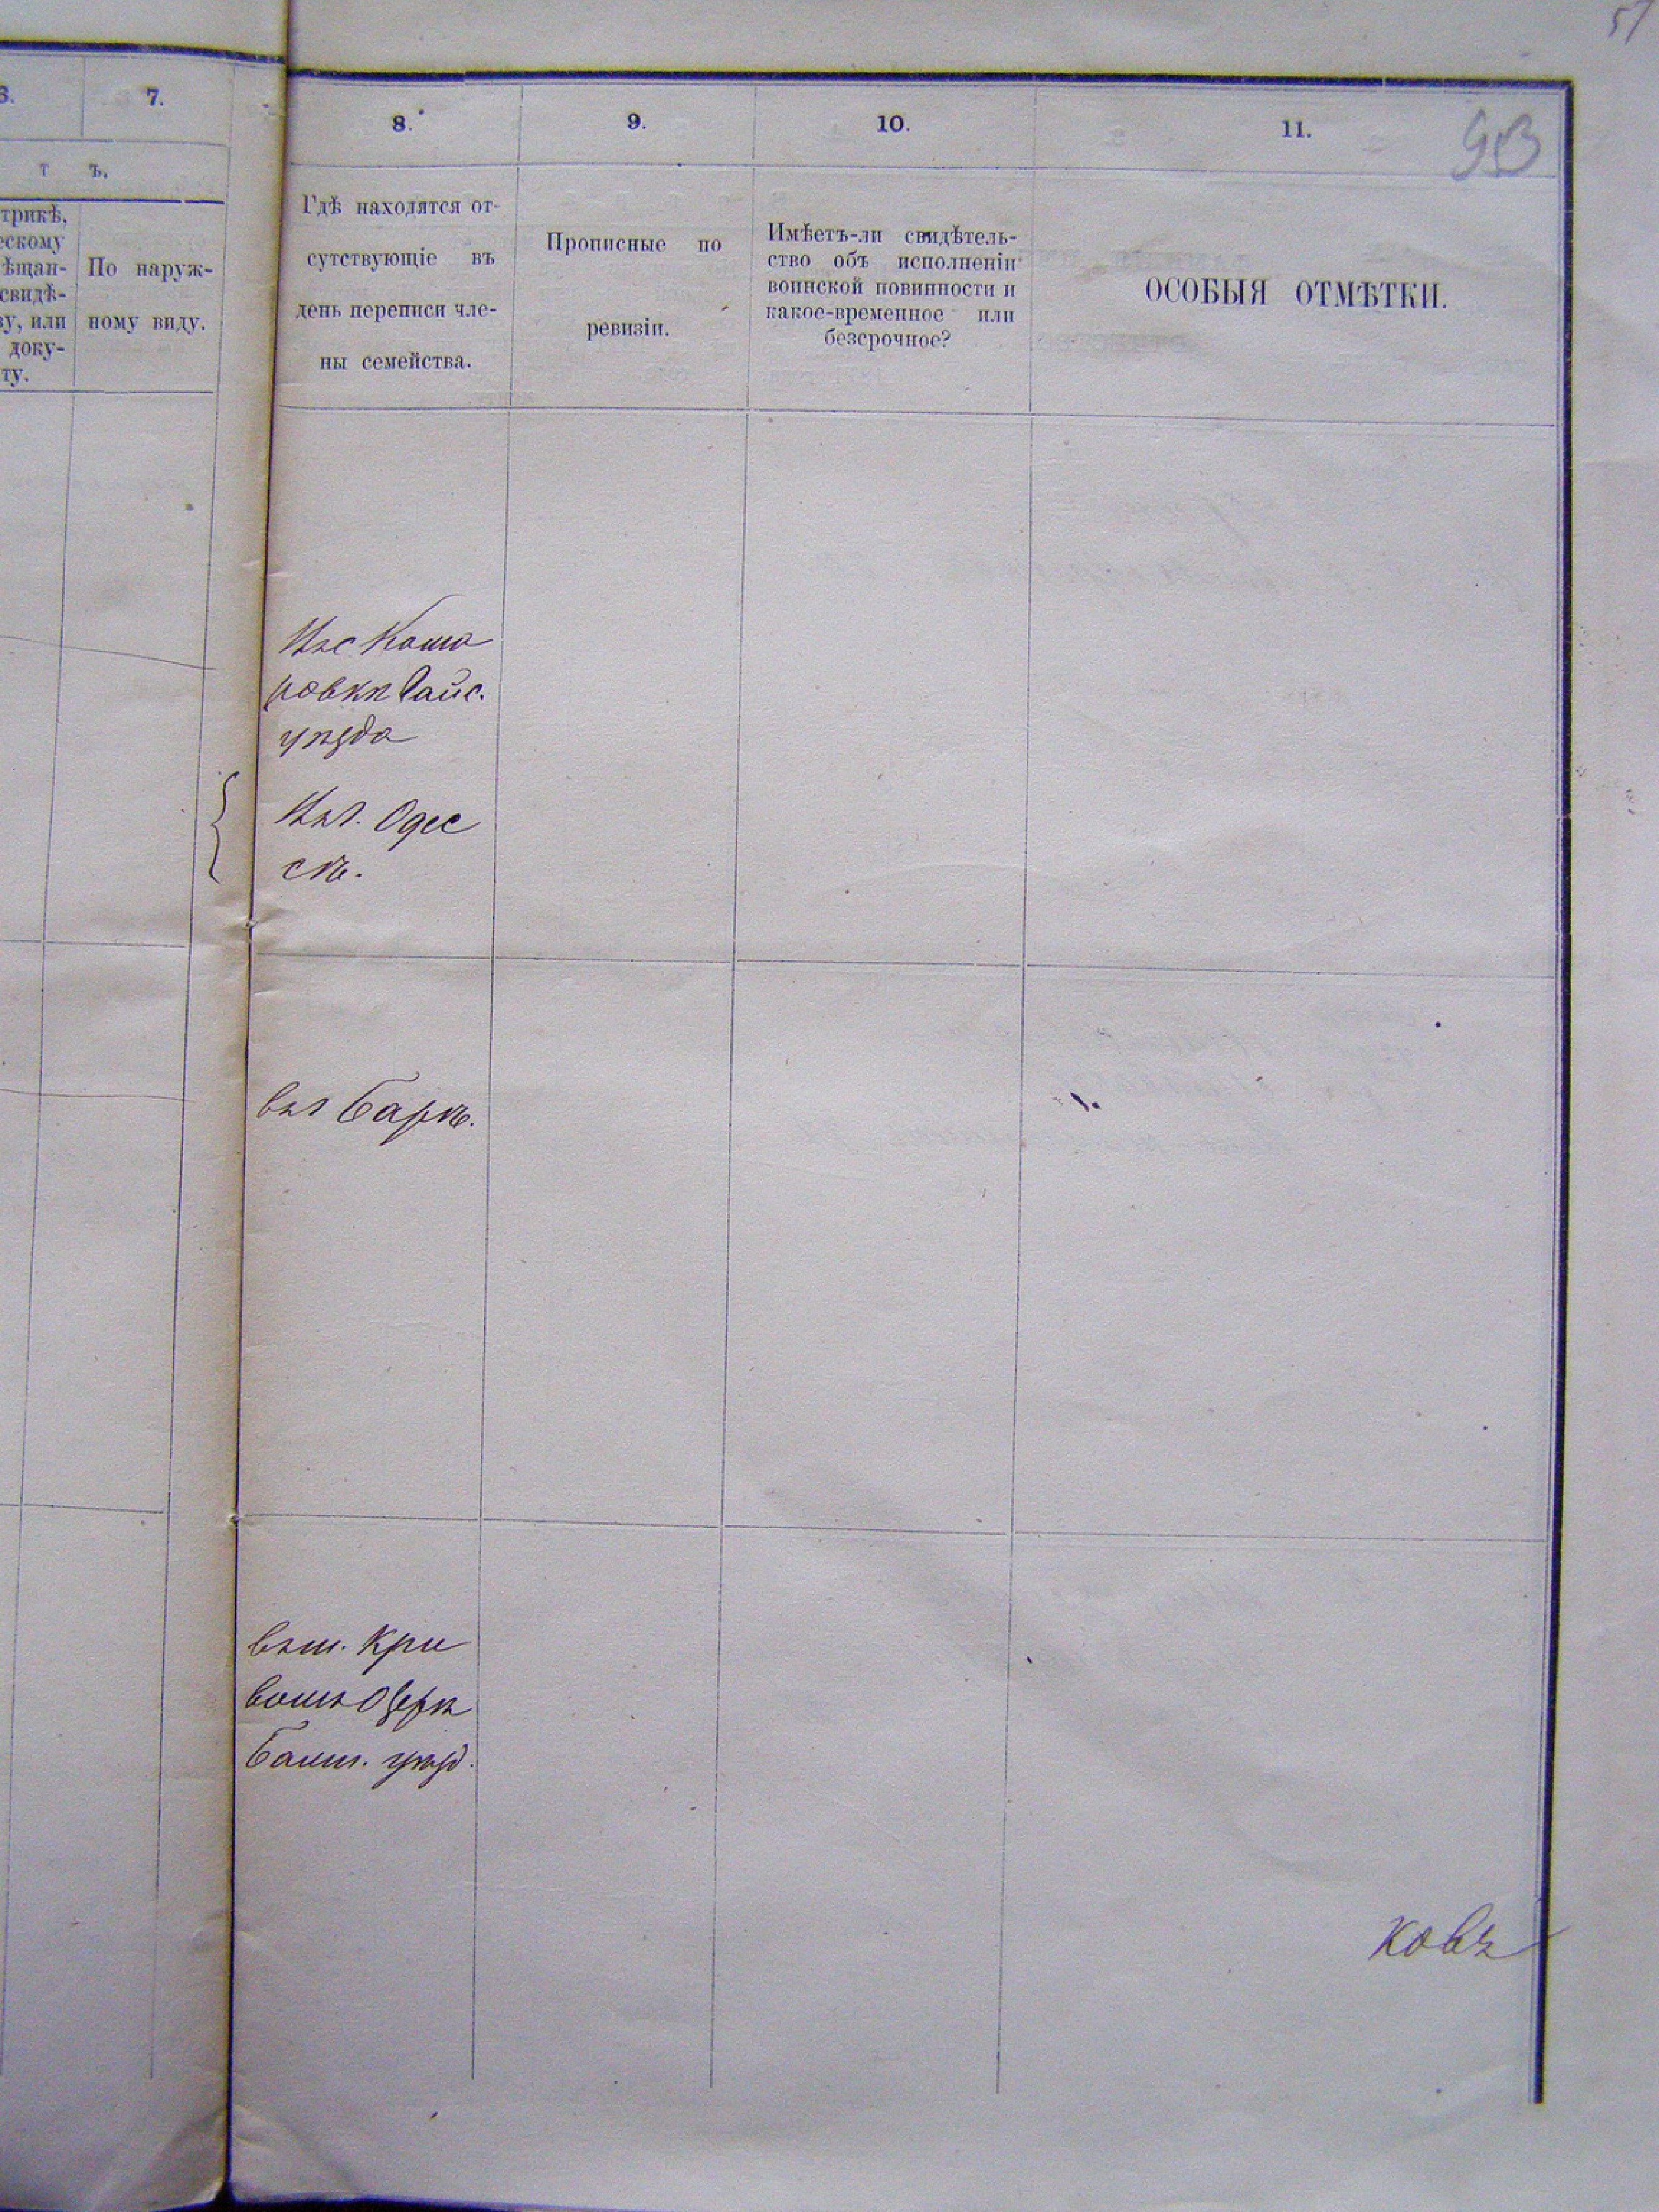 57
6. 7.
8. 9. 10. 11. 93
т ъ.
трикѣ,
ескому
ѣщан-
свидѣ-
ву, или
доку-
ту.
По наруж-
ному виду.
Гдѣ находятся от-
сутствующіе въ
день переписи чле-
ны семейства.
Прописные по
ревизіи.
Имѣетъ-ли свидѣтель-
ство объ исполненіи
воинской повинности и
какое-временное или
безсрочное?
ОСОБЫЯ ОТМѢТКИ.
Въ с Кома
ровкѣ Гайс.
уѣзда
Въ г. Одес
сѣ.
въ г Барѣ.
въ м. Кри
вомъ Озерѣ
Балт. уѣзд.
ковъ